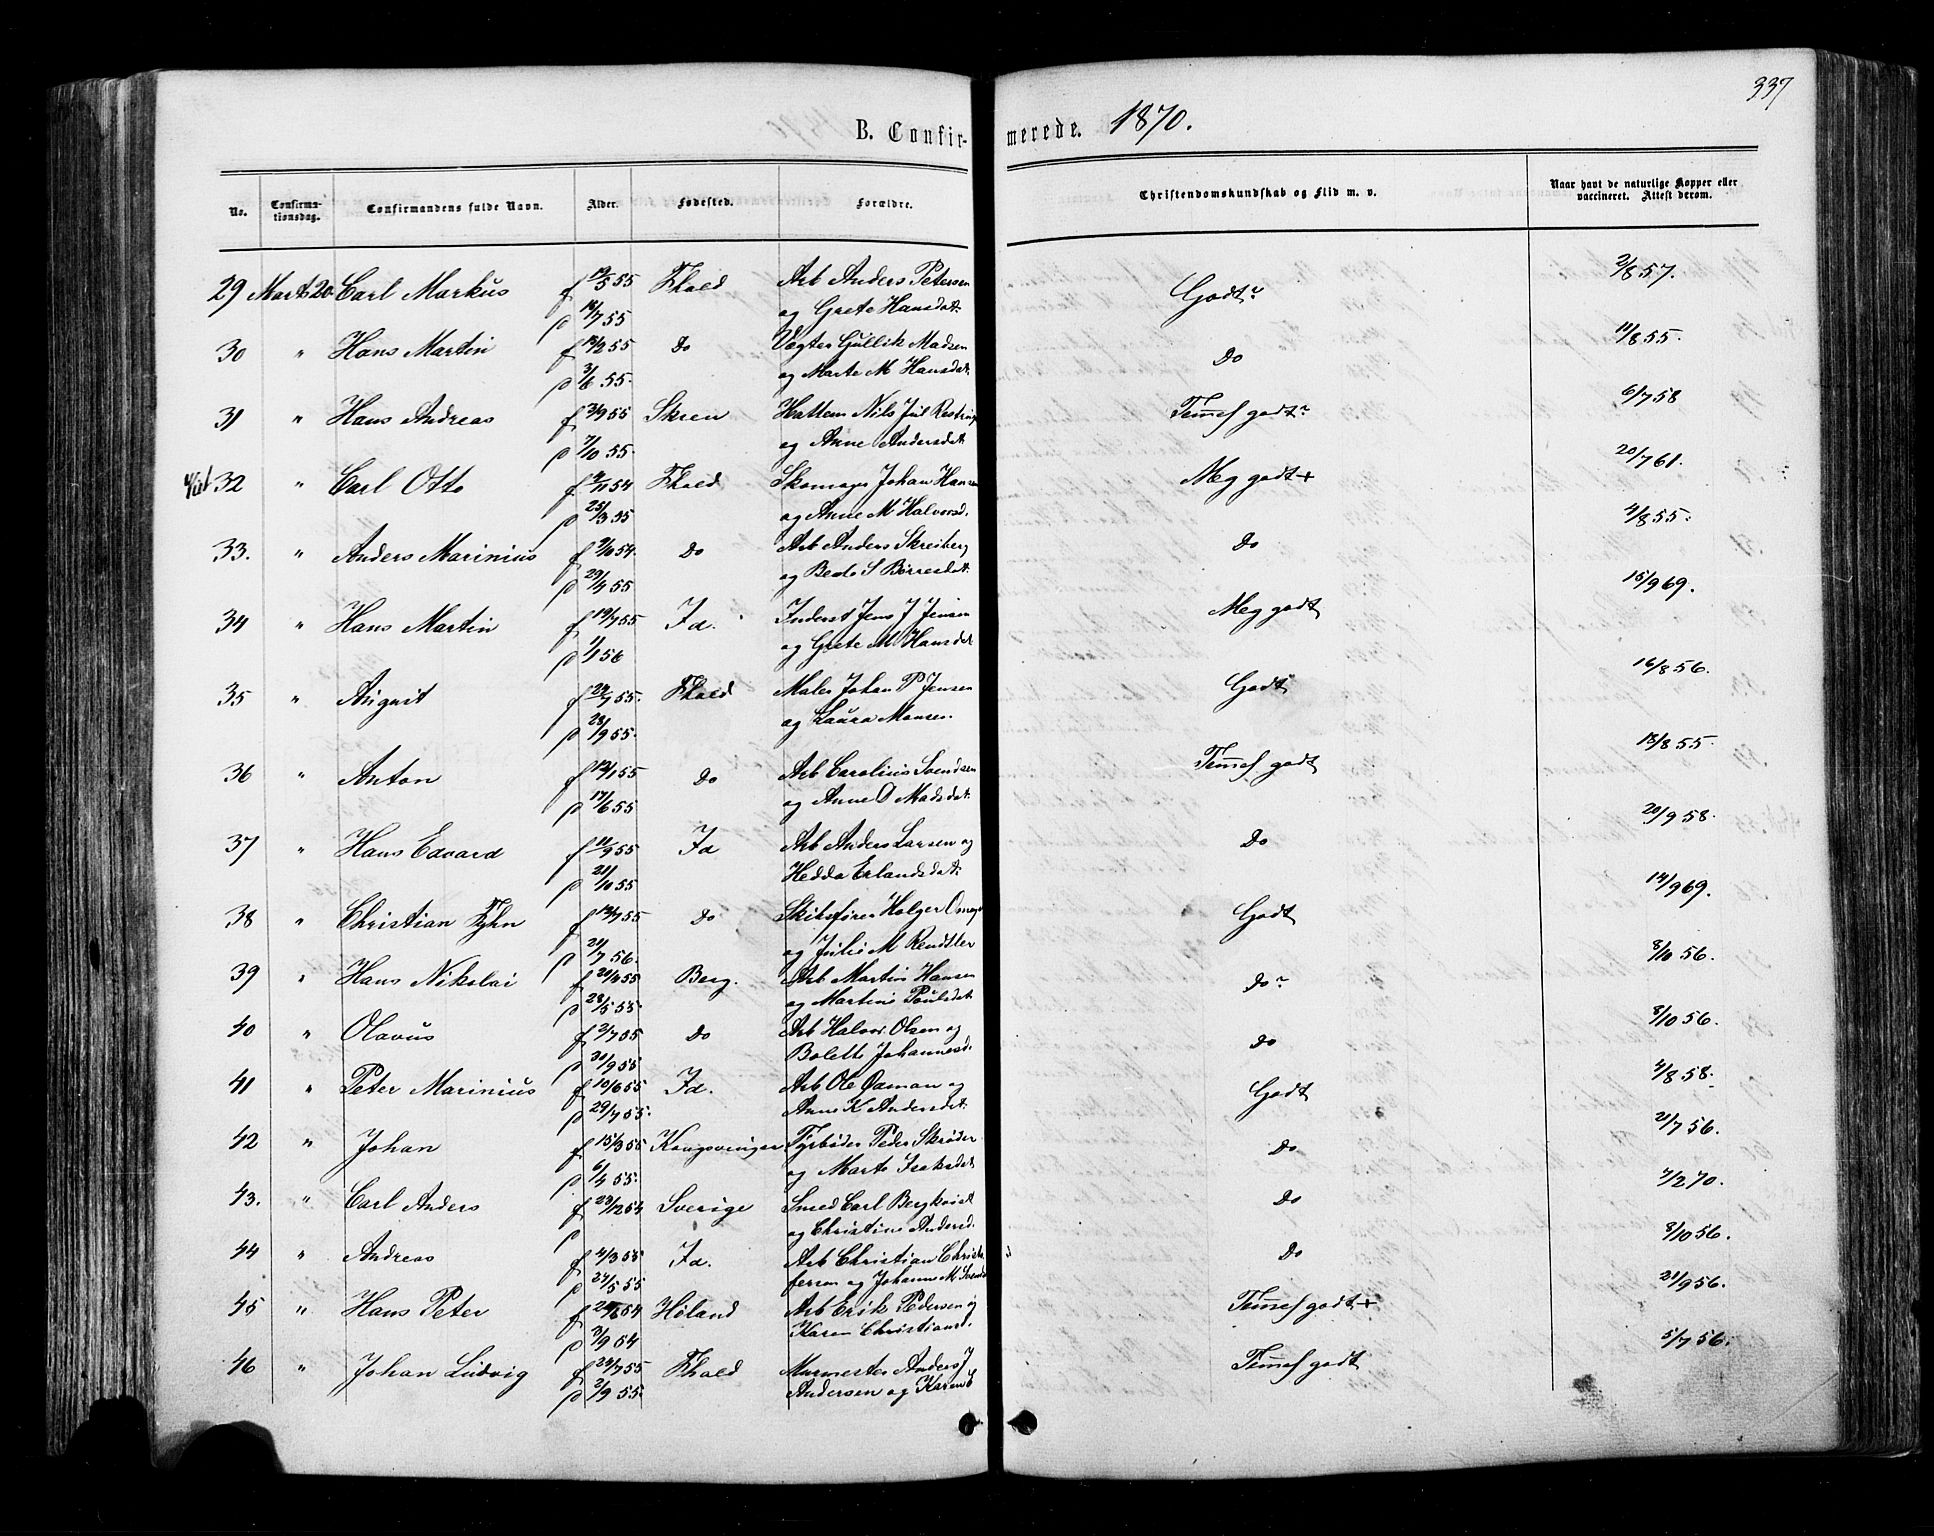 337
B. Confirmerede. 1870.
No. Confirmationsdag. Confirmandens fulde Navn. Alder. Fødested. Forældre. Christendomskundskab og Flid m. v. Naar havt de naturlige Kopper eller vaccineret. Attest derom.
29 Marts 20 Carl Markus f 12/5 55 Fhald Arb Anders Petersen Godt 2/8 57.
p /7 55 og Grete Hansdat.
30 " Hans Martin f /2 55 Do Vægter Gullik Madsen Do 11/8 55.
p 3/6 55. og Marte M Hansdat.
31 " Hans Andreas f 3/9 55 Skren Nils Jul Temmel godt 6/7 58
p 7/10 55. og Anne Andersdat.
32 " Carl Otto f /11 54 Fhald Skomager Johan Hansen Meg godt + 20/7 61.
p 25/3 55 og Anne M Halvorsd.
33. " Anders Marinius f /10 54. Do Arb Anders Skreiberg Do 4/8 55.
p 29/4 55 og Beate S Børresdat.
34 " Hans Martin f 19/7 55 Id. Inderst Jens J Jensen Meg godt 15/9 69.
p 1/1 56 og Grete M. Hansdat
35 " August f 22/7 55. Fhald Maler Johan P Jensen Godt 16/8 56.
p 23/9 55. og Laura Monsen.
36 " Anton f 12/1 55 Do Arb Carolius Svendsen Temmel godt 18/8 55.
p 17/6 55 og Anne O Madsdat.
37 " Hans Edvard f 11/9 55 Id Arb Anders Larsen og Do 20/9 58.
p 21/10 55 Hedda Erlandsdat.
38 " Christian Fyhn f 12/7 55 Do Skibsfører Holger Godt 14/9 69.
p 21/7 56. og Julie M Rendtler
39 " Hans Nikolai f 20/4 55 Berg. Arb Martin Hansen Do 8/10 56.
p 28/5 55. og Martine Poulsdat
40 " Olavus f 2/7 55 Do Arb Halvor Olsen og Do 8/10 56.
p 30/9 55 Bolette Johannesd.
41 " Peter Marinius f 10/6 55 Id. Arb Ole Daman og Godt 4/8 58.
p 29/7 55. Anne K Andersdat.
42 " Johan f 15/3 55 Kongsvinger Fyrbøder Peder Skrøder Do 21/7 56.
p 6/4 55. og Marte Isaksdat
43. " Carl Anders f 23/12 54 Sverige Smed Carl Bergkvist Do 7/2 70.
p og Christine Andersd.
44 " Andreas f 4/3 55 Id. Arb Christian Christo Do 8/10 56.
p 27/5 55 fersen og Johanne M Svends
45 " Hans Peter f 24/6 54 Høland Arb Erik Pedersen og Temmel godt + 21/9 56.
p 3/9 54 Karen Christiansd.
46 " Johan Ludvig f 24/7 55 Fhald Murmester Anders J Temmel godt 5/7 56.
p 2/9 55. Andersen og Karen